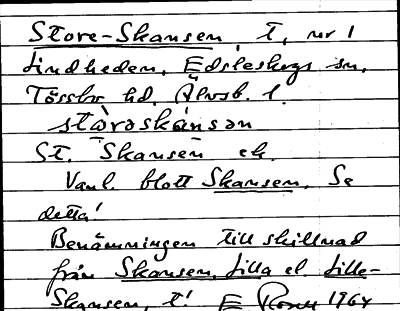 Store-Skansen, t, nr 1
Lindheden, Edsleskogs sn,
Tössbo hd. Älvsb. l.
stòrəskánsən
St. Skansen ek.
Vanl. blott Skansen. Se
detta!
Benämningen till skillnad
från Skansen, Lilla el. Lille-
Skansen, t! E 1964